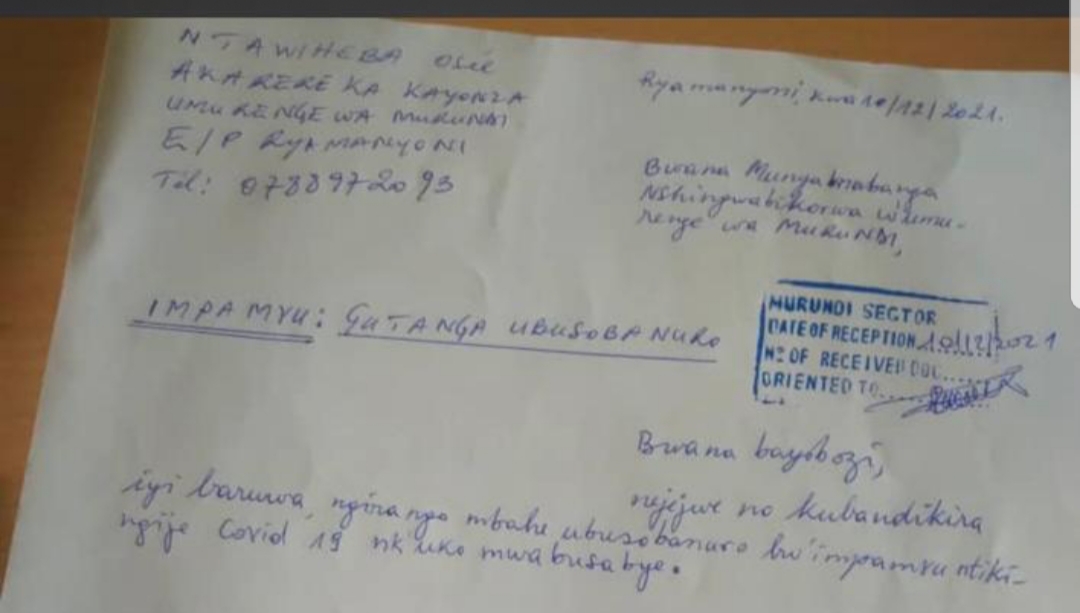 NTAWIHEBA Osée
AKARERE KA KAYONZA
UMURENGE WA MURUNDI
E/P RYAMANYONI
Tél: 0788972093
Ryamanyoni, kwa 10/12/2021.
Bwana Munyabanabanga
Nshingwabikorwa w'umu-
renge wa MURUNDI,
IMPAMVU: GUTANGA UBUSOBANURO
MURUNDI SECTOR
DATE OF RECEPTION 10/12/2021
No OF RECEIVED DOC......
ORIENTED TO......
Bwana bayobozi,
nejejwe no kubandikira
iyi baruwa, ngira ngo mbahe ubusobanuro bw'impamvu ntiki-
ngije Covid 19 nk'uko mwabusabye.